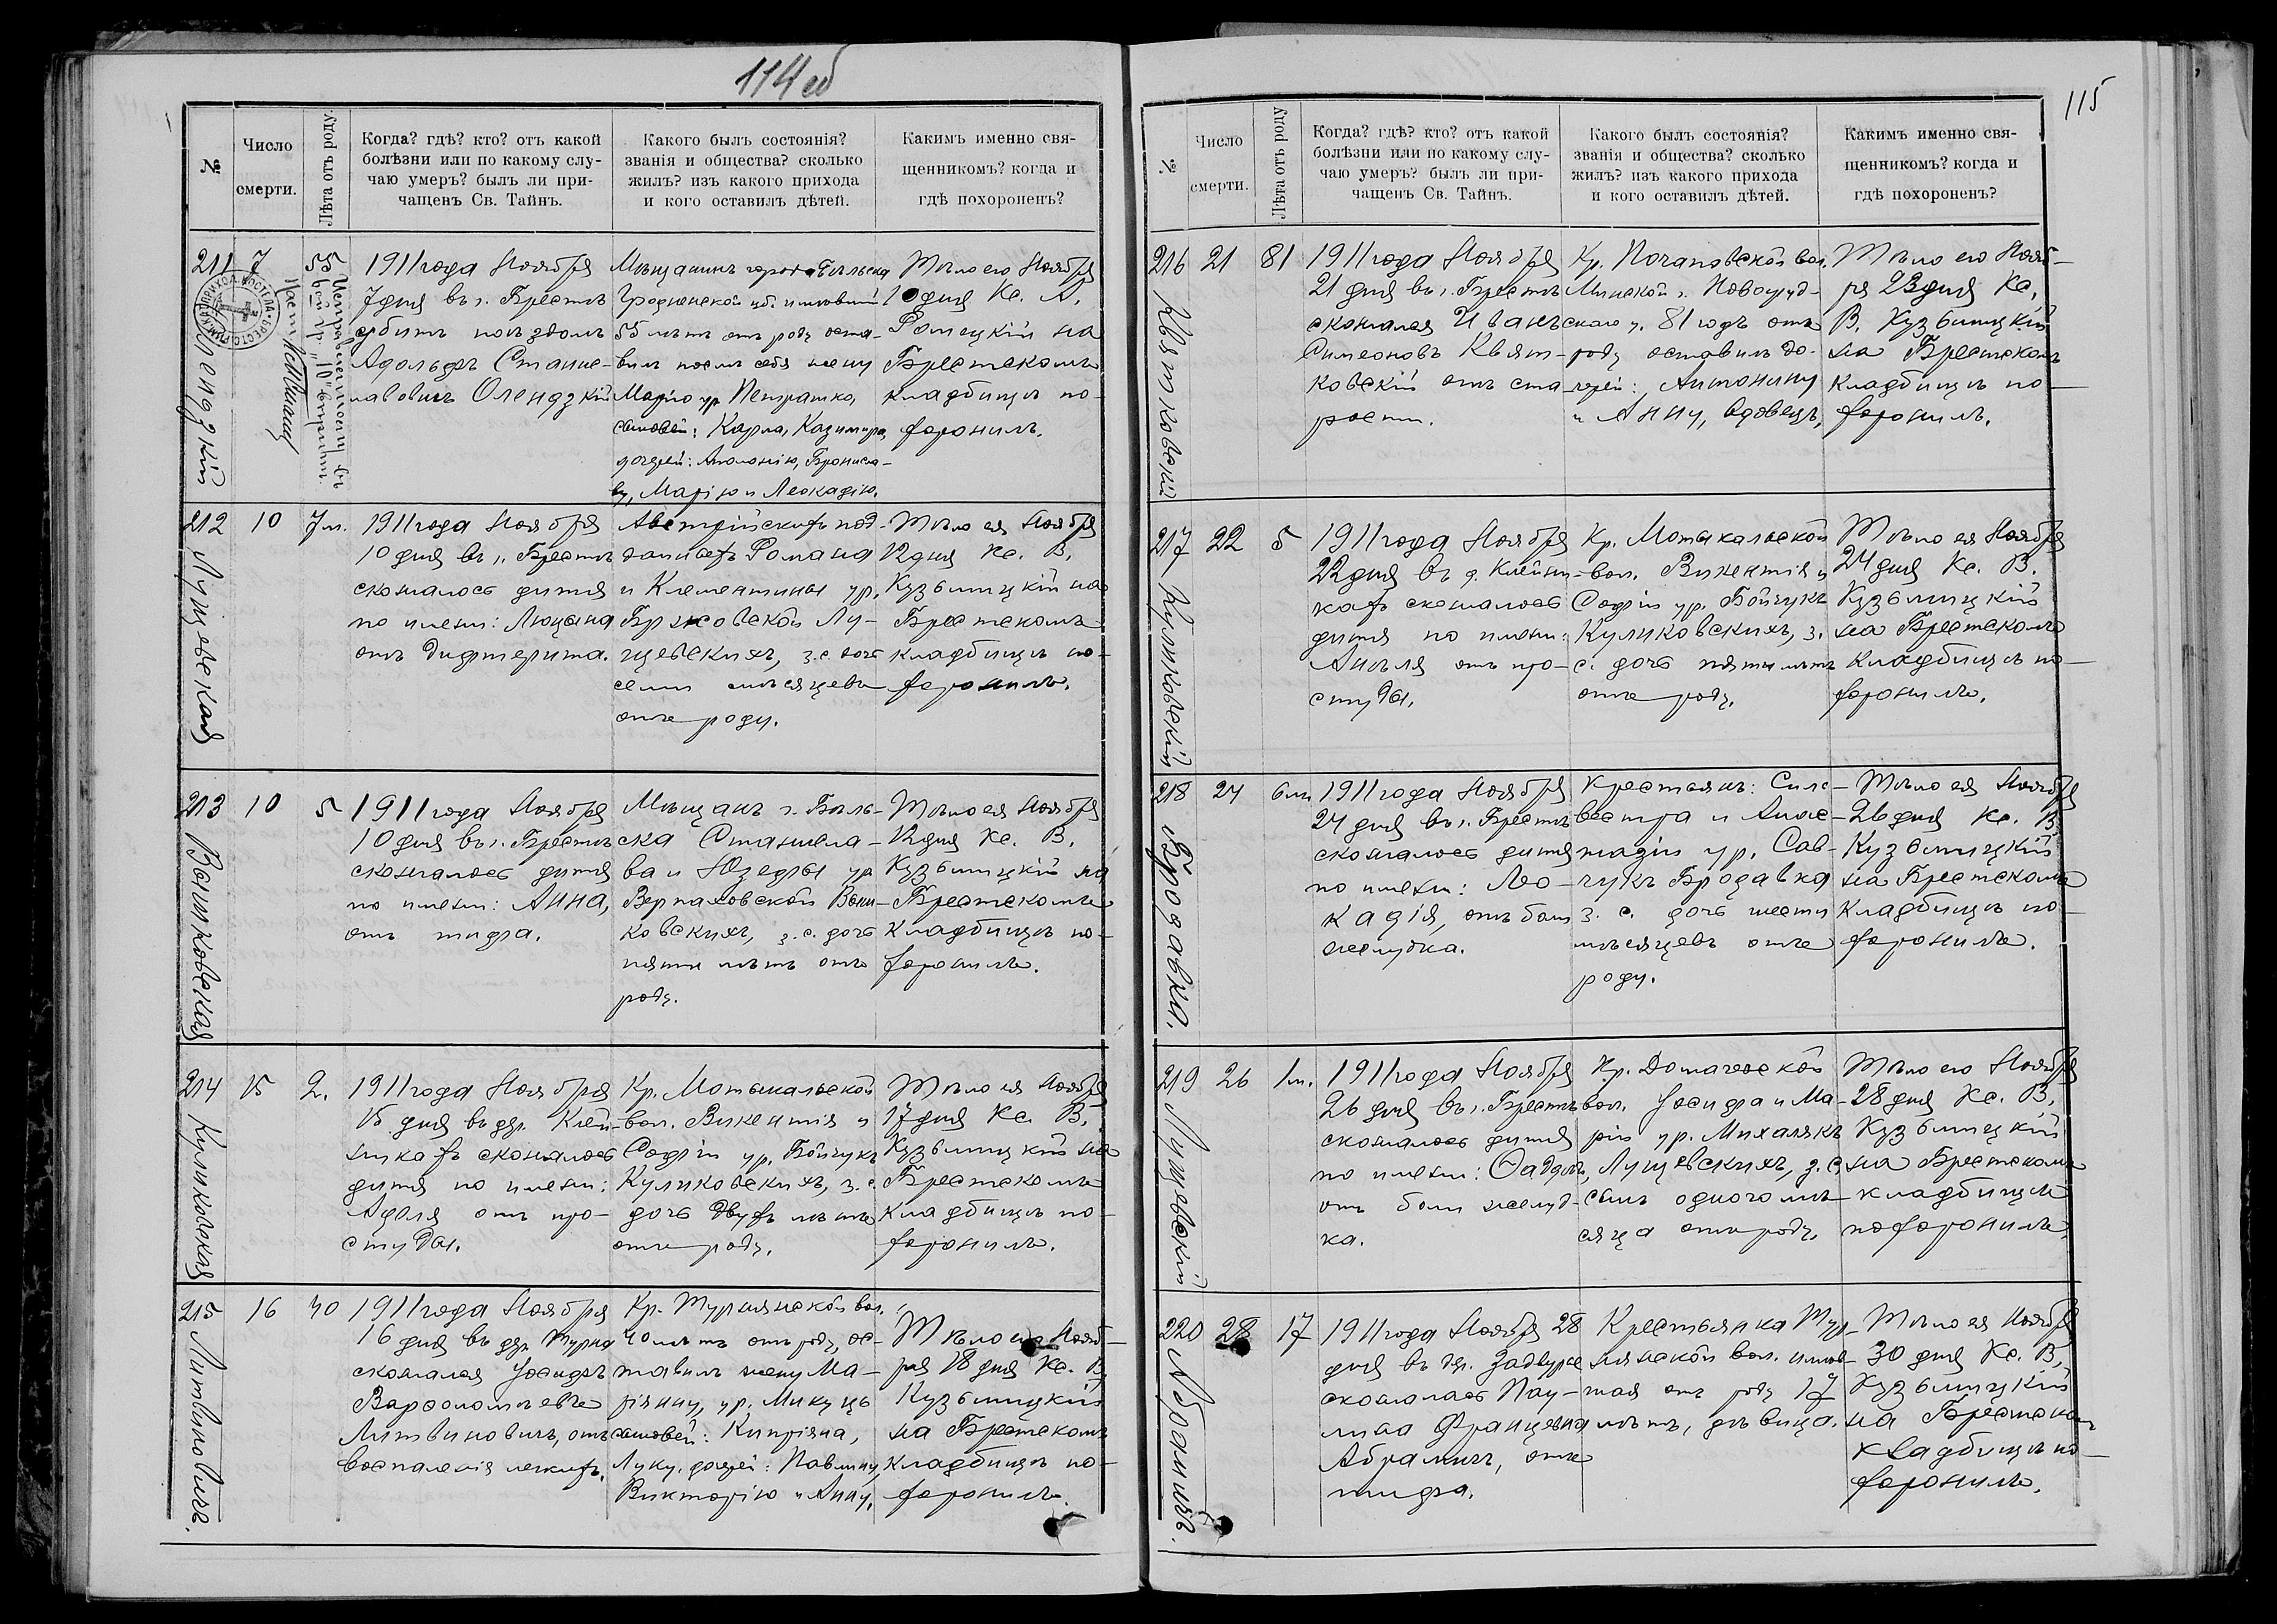 114 об
№
Число
смерти.
Лѣта отъ роду.
Когда? гдѣ? кто? отъ какой
болѣзни или по какому слу-
чаю умеръ? былъ ли при-
чащенъ Св. Тайнъ.
Какого былъ состоянія?
званія и общества? сколько
жилъ? изъ какого прихода
и кого оставилъ дѣтей.
Какимъ именно свя-
щенникомъ? когда и
гдѣ похороненъ?
211
Олендзкій
7
55
1911 года Ноября
7 дня въ г. Брестѣ
убитъ поѣздомъ
Адольфъ Станис-
лавовичъ Олендзкій
Мѣщанинъ города Бѣльска
Гродненской губ. имѣвшій
55 лѣтъ отъ роду оста-
вилъ послѣ себя жену
Марію ур. Петрашко,
сыновей: Карла, Казимира,
дочерей: Аполонію, Бронисла-
ву, Марію и Леокадію.
Тѣло его Ноября
10 дня Кс. А.
Ромецкій на
Брестскомъ
кладбищѣ по-
хоронилъ.
212
Лущевская
10
7 м.
1911 года Ноября
10 дня въ г. Брестѣ
скончалось дитя
по имени: Люцына
отъ дифтерита.
Австрійскихъ под-
данныхъ Романа
и Клементины ур.
Бржовской Лу-
щевскихъ, з. с. дочь
семи мѣсяцевъ
отъ роду.
Тѣло ея Ноября
12 дня Кс. В.
Кузьмицкій на
Брестскомъ
кладбищѣ по-
хоронилъ.
213
Вышковская
10
5
1911 года Ноября
10 дня въ г. Брестѣ
скончалось дитя
по имени: Анна,
отъ тифа.
Мѣщанъ г. Бѣль-
ска Станисла-
ва и Юзефы ур.
Верпаховской Выш-
ковскихъ, з. с. дочь
пяти лѣтъ отъ
роду.
Тѣло ея Ноября
12 дня Кс. В.
Кузьмицкій на
Брестскомъ
кладбищѣ по-
хоронилъ.
214
Куликовская
15
2.
1911 года Ноября
15 дня въ др. Клей-
никахъ скончалось
дитя по имени:
Адоля отъ про-
студы.
Кр. Мотыкальской
вол. Викентія и
Софіи ур. Бойчукъ
Куликовскихъ, з. с.
дочь двухъ лѣтъ
отъ роду.
Тѣло ея Ноября
17 дня Кс. В.
Кузьмицкій на
Брестскомъ
кладбищѣ по-
хоронилъ.
215
Литвиновичъ.
16
40
1911 года Ноября
16 дня въ др. Турна
скончался Іосифъ
Варѳоломѣевъ
Литвиновичъ, отъ
воспаленія легкихъ.
Кр. Турнянской вол.
40 лѣтъ отъ роду, ос-
тавилъ жену Ма-
ріянну, ур. Микуць
сыновей: Кипріяна,
Луку, дочерей: Павлину,
Викторію и Анну.
Тѣло его Нояб-
ря 18 дня Кс. В.
Кузьмицкій
на Брестскомъ
кладбищѣ по-
хоронилъ.
115
№
Число
смерти.
Лѣта отъ роду
Когда? гдѣ? кто? отъ какой
болѣзни или по какому слу-
чаю умеръ? былъ ли при-
чащенъ Св. Тайнъ.
Какого былъ состоянія?
званія и общества? сколько
жилъ? изъ какого прихода
и кого оставилъ дѣтей.
Какимъ именно свя-
щенникомъ? когда и
гдѣ похороненъ?
216
Квятковскій
21
81
1911 года Ноября
21 дня въ г. Брестѣ
скончался Иванъ
Симеоновъ Квят-
ковскій отъ ста-
рости.
Кр. Почаповской вол.
Минской г. Новогруд-
скаго у. 81 годъ отъ
роду оставилъ до-
черей: Антонину
и Анну, вдовецъ,
Тѣло его Нояб-
ря 23 дня Кс.
В. Кузьмицкій
на Брестскомъ
кладбищѣ по-
хоронилъ.
217
Куликовскій
22
5
1911 года Ноября
22 дня въ д. Клейни-
кахъ скончалось
дитя по имени:
Анеля отъ про-
студы.
Кр. Мотыкальской
вол. Викентія и
Софіи ур. Бойчукъ
Куликовскихъ, з.
с. дочь пяти лѣтъ
отъ роду.
Тѣло ея Ноября
24 дня Кс. В.
Кузьмицкій
на Брестскомъ
кладбищѣ по-
хоронилъ.
218
Бродавка.
24
6 м.
1911 года Ноября
24 дня въ г. Брестѣ
скончалось дитя
по имени: Лео-
кадія, отъ боли
желудка.
Крестьянъ: Силь-
вестра и Анас-
тазіи ур. Сав-
чукъ Бродавка
з. с. дочь шести
мѣсяцевъ отъ
роду.
Тѣло ея Ноября
26 дня Кс. В.
Кузьмицкій
на Брестскомъ
кладбищѣ по-
хоронилъ.
219
Лущевскій
26
1 м.
1911 года Ноября
26 дня въ г. Брестѣ
скончалось дитя
по имени: Ѳаддей,
отъ боли желуд-
ка.
Кр. Домачевской
вол. Іосифа и Ма-
ріи ур. Михалякъ
Лущевскихъ, з. с.
сынъ одного мѣ-
сяца отъ роду.
Тѣло его Ноября
28 дня Кс. В.
Кузьмицкій
на Брестскомъ
кладбищѣ
похоронилъ.
220
Абрамичъ.
28
17
1911 года Ноября 28
дня въ др. Задворце
скончалась Пау-
лина Францевна
Абрамичъ, отъ
тифа.
Крестьянка Тур-
нянской вол. имѣв-
шая отъ роду 17
лѣтъ, дѣвица.
Тѣло ея Ноября
30 дня Кс. В.
Кузьмицкій
на Брестскомъ
кладбищѣ по-
хоронилъ.